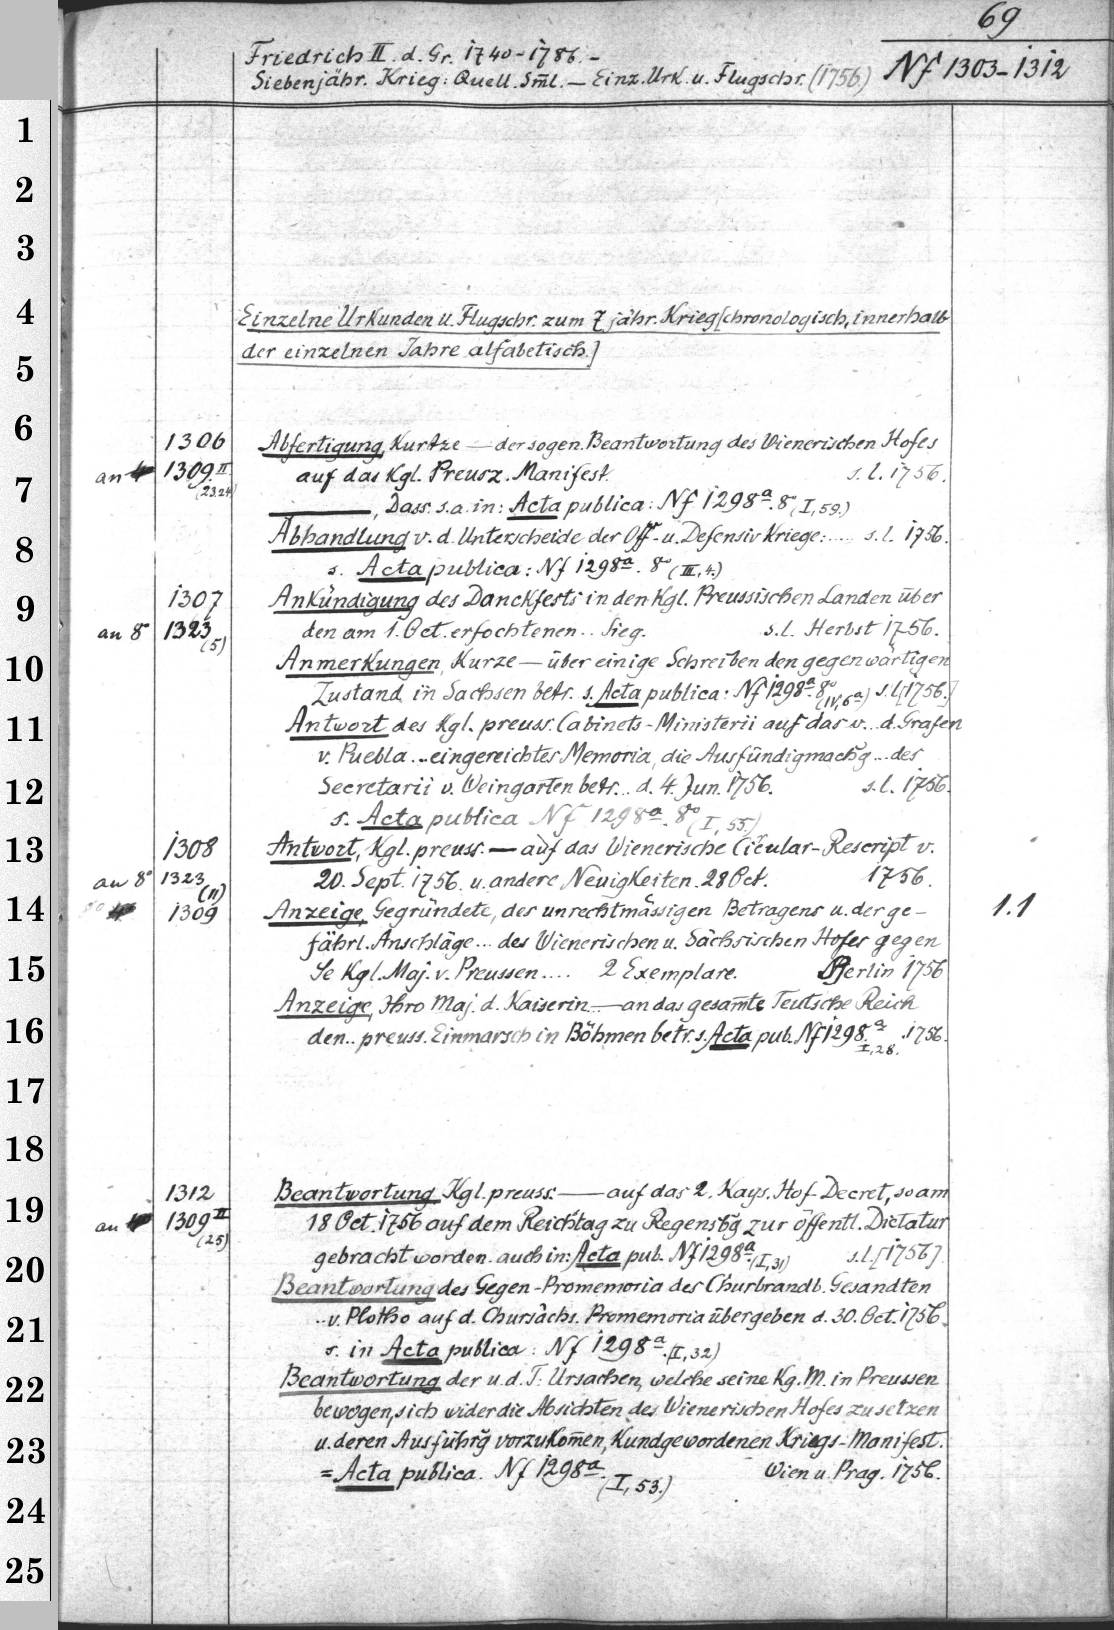 69
Friedrich II. d. Gr. 1740-1786.-
Nf 1303-1312
Siebenjähr. Krieg: Quell. Sm̄l. — Einz. Urk. u. Flugschr. (1756.)
Einzelne Urkunden u. Flugschr. zum 7 jähr. Krieg [chronologisch, innerhalb
der einzelnen Jahre alfabetisch.]
1306 Abfertigung, Kurtze — der sogen. Beantwortung des Wienerischen Hofes
an 1309 II (23.24) auf das Kgl. Preusz. Manifest. s. l. 1756.
———, Dass. s. a. in: Acta publica: Nf 1298a. 8° (I, 59.)
Abhandlung v. d. Unterscheide der Off- u. Defensiv Kriege: .... s. l. 1756.
s. Acta publica: Nf 1298a. 8° (III, 4.)
1307 Ankündigung des Danckfests in den Kgl. Preussischen Landen über
an 8° 1323 (5) den am 1. Oct. erfochtenen .. Sieg. s. l. Herbst 1756.
Anmerkungen, Kurze — über einige Schreiben den gegenwärtigen
Zustand in Sachsen betr. s. Acta publica: Nf 1298a. 8° (IV, 6a) s. l. [1756.]
Antwort des Kgl. preuss. Cabinets-Ministerii auf das v... d. Grafen
v. Puebla ... eingereichtes Memoria, die Ausfündigmach̄g ... des
Secretarii v. Weingarten betr... d. 4. Jun. 1756. s. l. 1756.
s. Acta publica Nf 1298a. 8° (I, 55.)
1308 Antwort, Kgl. preuss. — auf das Wienerische Circular-Rescript v.
an 8° 1323 (11) 20. Sept. 1756. u. andere Neuigkeiten. 28 Oct. 1756.
1309 Anzeige, Gegründete, des unrechtmässigen Betragens u. der ge- 1.1
fährl. Anschläge ... des Wienerischen u. Sächsischen Hofes gegen
Se Kgl. Maj. v. Preussen .... 2 Exemplare. Berlin 1756
Anzeige, Ihro Maj. d. Kaiserin — an das gesam̄te Teutsche Reich
den .. preuss. Einmarsch in Böhmen betr. s. Acta pub. Nf 1298a. I, 28. 1756.
1312 Beantwortung, Kgl. preuss. — auf das 2. Kays. Hof-Decret, so am
an 1309 III (25) 18 Oct. 1756 auf dem Reichstag zu Regensb̄g zur öffentl. Dictatur
gebracht worden. auch in: Acta pub. Nf 1298a. (I, 31) s. l. [1756].
Beantwortung des Gegen-Promemoria des Churbrandb. Gesandten
.. v. Plotho auf d. Chursächs. Promemoria übergeben d. 30. Oct. 1756.
s. in Acta publica: Nf 1298a. (II, 32)
Beantwortung der u. d. T: Ursachen, welche seine Kg. M. in Preussen
bewogen, sich wider die Absichten des Wienerischen Hofes zu setzen
u. deren Ausführ̄g vorzukom̄en, kundgewordenen Kriegs-Manifest.
= Acta publica. Nf 1298a. (I, 53.) Wien u. Prag. 1756.
1
2
3
4
5
6
7
8
9
10
11
12
13
14
15
16
17
18
19
20
21
22
23
24
25